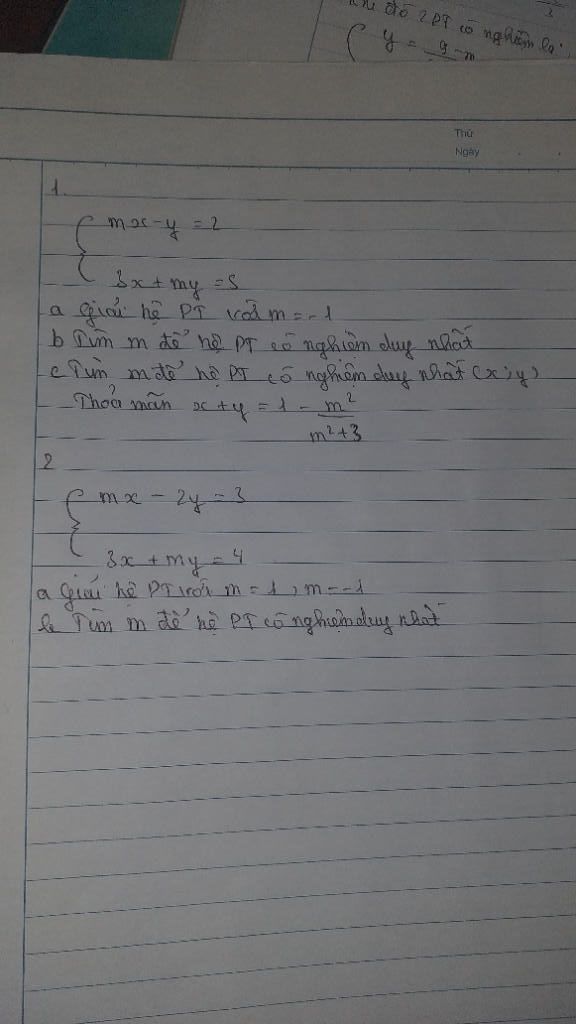 khi đó 2 PT có nghiệm là:
{ y = 9-m
Thứ
Ngày
1.
{ mx - y = 2
3x + my = 5
a Giải hệ PT với m = -1
b Tìm m để hệ PT có nghiệm duy nhất
c Tìm m để hệ PT có nghiệm duy nhất (x; y)
Thoả mãn x + y = 1 - m²/m²+3
2
{ mx - 2y = 3
3x + my = 4
a Giải hệ PT với m = 1, m = -1
b Tìm m để hệ PT có nghiệm duy nhất